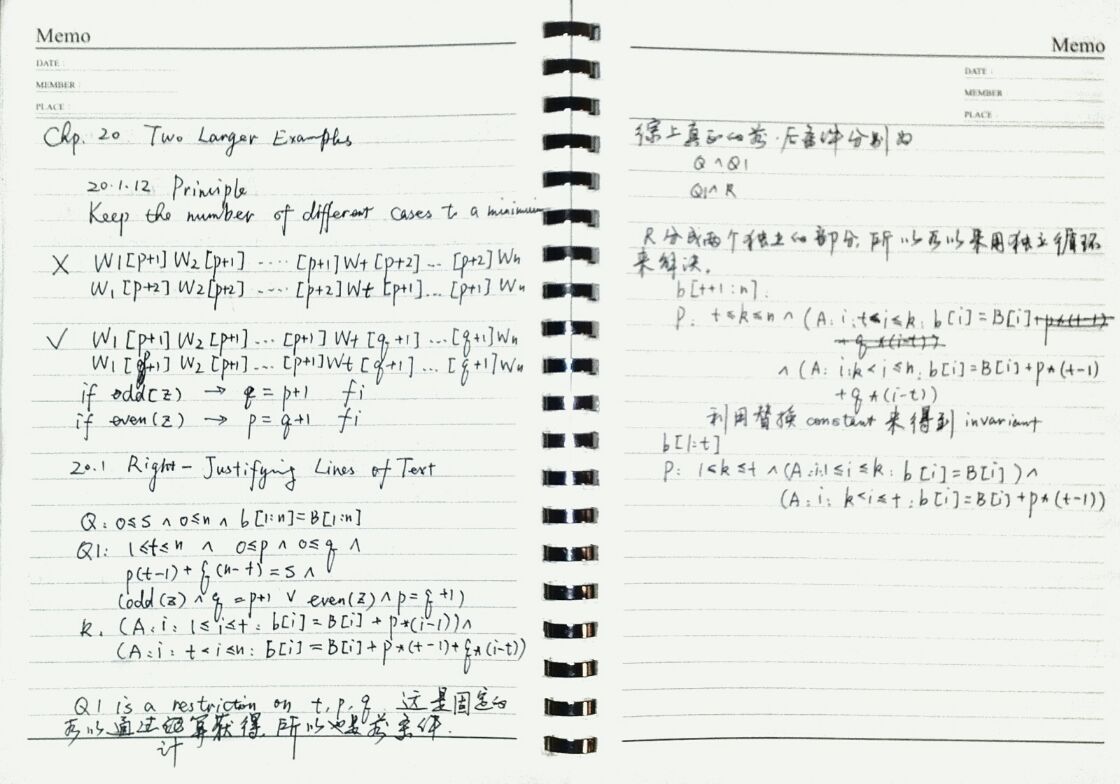 Memo
DATE :
MEMBER :
PLACE :
Chp. 20 Two Larger Examples
20.1.12 Principle
Keep the number of different cases to a minimum
X W1[p+1] W2[p+1] ···· [p+1] Wt [p+2] ... [p+2] Wn
W1[p+2] W2[p+2] ···· [p+2] Wt [p+1] ... [p+1] Wn
✓ W1[p+1] W2[p+1] ... [p+1] Wt [q+1] ... [q+1] Wn
W1[q+1] W2[p+1] ... [p+1] Wt [q+1] ... [q+1] Wn
if odd(z) → q = p+1 fi
if even(z) → p = q+1 fi
20.1 Right-Justifying Lines of Text
Q: 0≤s ∧ 0≤n ∧ b[1:n]=B[1:n]
Q1: 1≤t≤n ∧ 0≤p ∧ 0≤q ∧
p(t-1) + q(n-t) = s ∧
(odd(z) ∧ q = p+1 ∨ even(z) ∧ p = q+1)
R. (A: i: 1≤i≤t: b[i] = B[i] + p*(i-1)) ∧
(A: i: t<i≤n: b[i] = B[i] + p*(t-1) + q*(i-t))
Q1 is a restriction on t, p, q. 这是固定的
可以通过计算获得, 所以也是前条件.
Memo
DATE :
MEMBER
PLACE :
综上真正的前.后条件分别为
Q ∧ Q1
Q1 ∧ R
R分成两个独立的部分, 所以可以采用独立循环
来解决.
b[t+1:n]:
P: t≤k≤n ∧ (A: i: t<i≤k: b[i] = B[i]+p*(t-1)
+q*(i-t))
∧ (A: i: k<i≤n: b[i] = B[i] + p*(t-1)
+q*(i-t))
利用替换 constant 来得到 invariant
b[1:t]
P: 1≤k≤t ∧ (A: i: 1≤i≤k: b[i] = B[i]) ∧
(A: i: k<i≤t: b[i] = B[i] + p*(t-1))